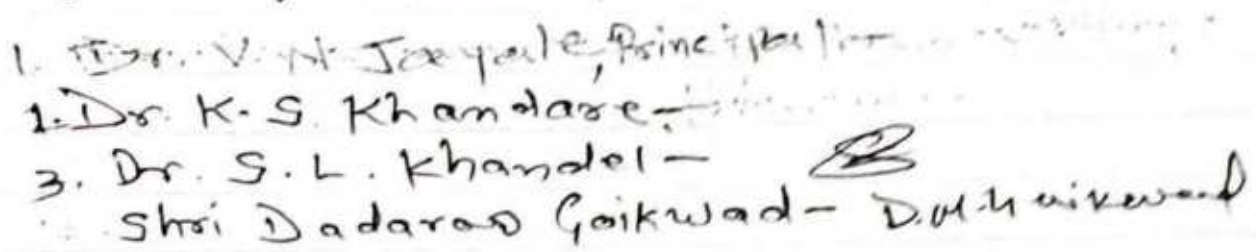 1. Dr. V. N. Jaeyale, Principal -
1. Dr. K. S. Khandare -
3. Dr. S. L. Khandel -
Shri Dadarao Gaikwad -